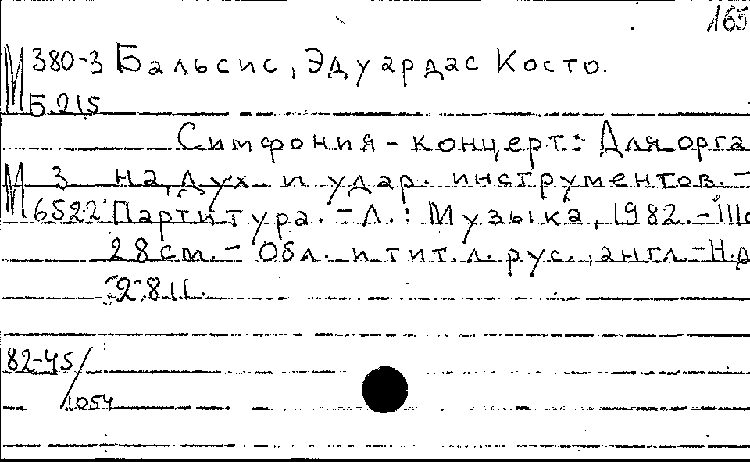 165
М 380-3 Бальсис, Эдуардас Косто.
Б 215
Симфония-концерт: Для орга
М 3 на, дух. и удар. инструментов. -
6522 Партитура. - Л.: Музыка, 1982. - 111с
28 см. - Обл. и тит. л. рус., англ. - Н.д
2811.
82-45/
1054